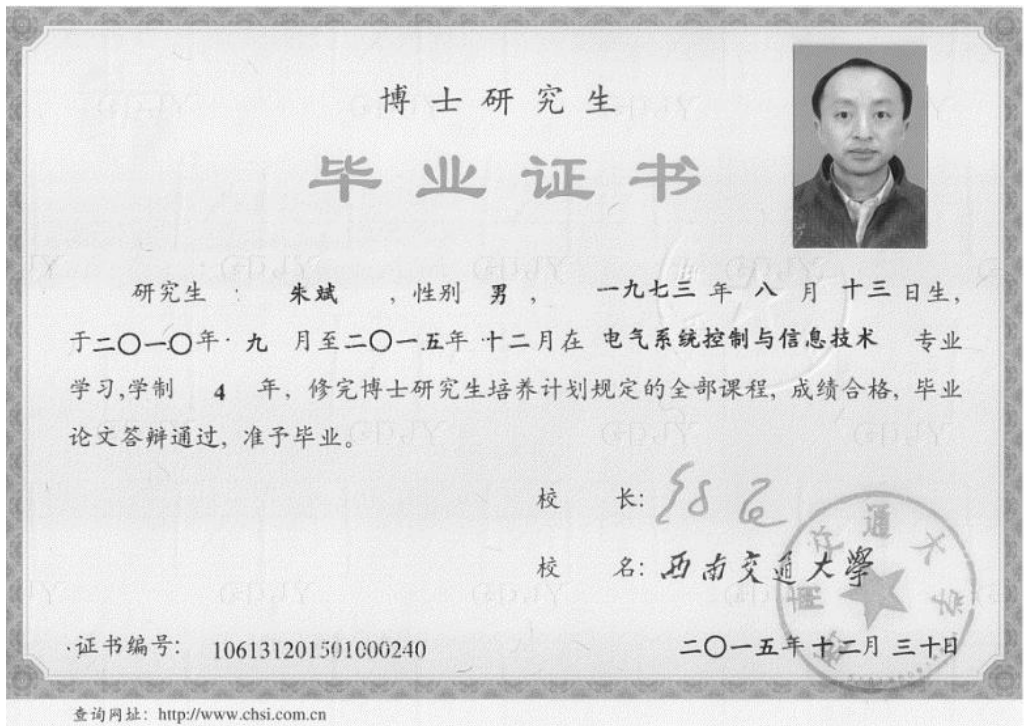 博士研究生
毕业证书
研究生 : 朱斌 , 性别 男 , 一九七三 年 八 月 十三 日生,
于二〇一〇年 九 月至二〇一五年 十二月在 电气系统控制与信息技术 专业
学习,学制 4 年, 修完博士研究生培养计划规定的全部课程, 成绩合格, 毕业
论文答辩通过, 准予毕业。
校 长:
校 名: 西南交通大學
证书编号: 106131201501000240 二〇一五年 十二月 三十日
查询网址: http://www.chsi.com.cn